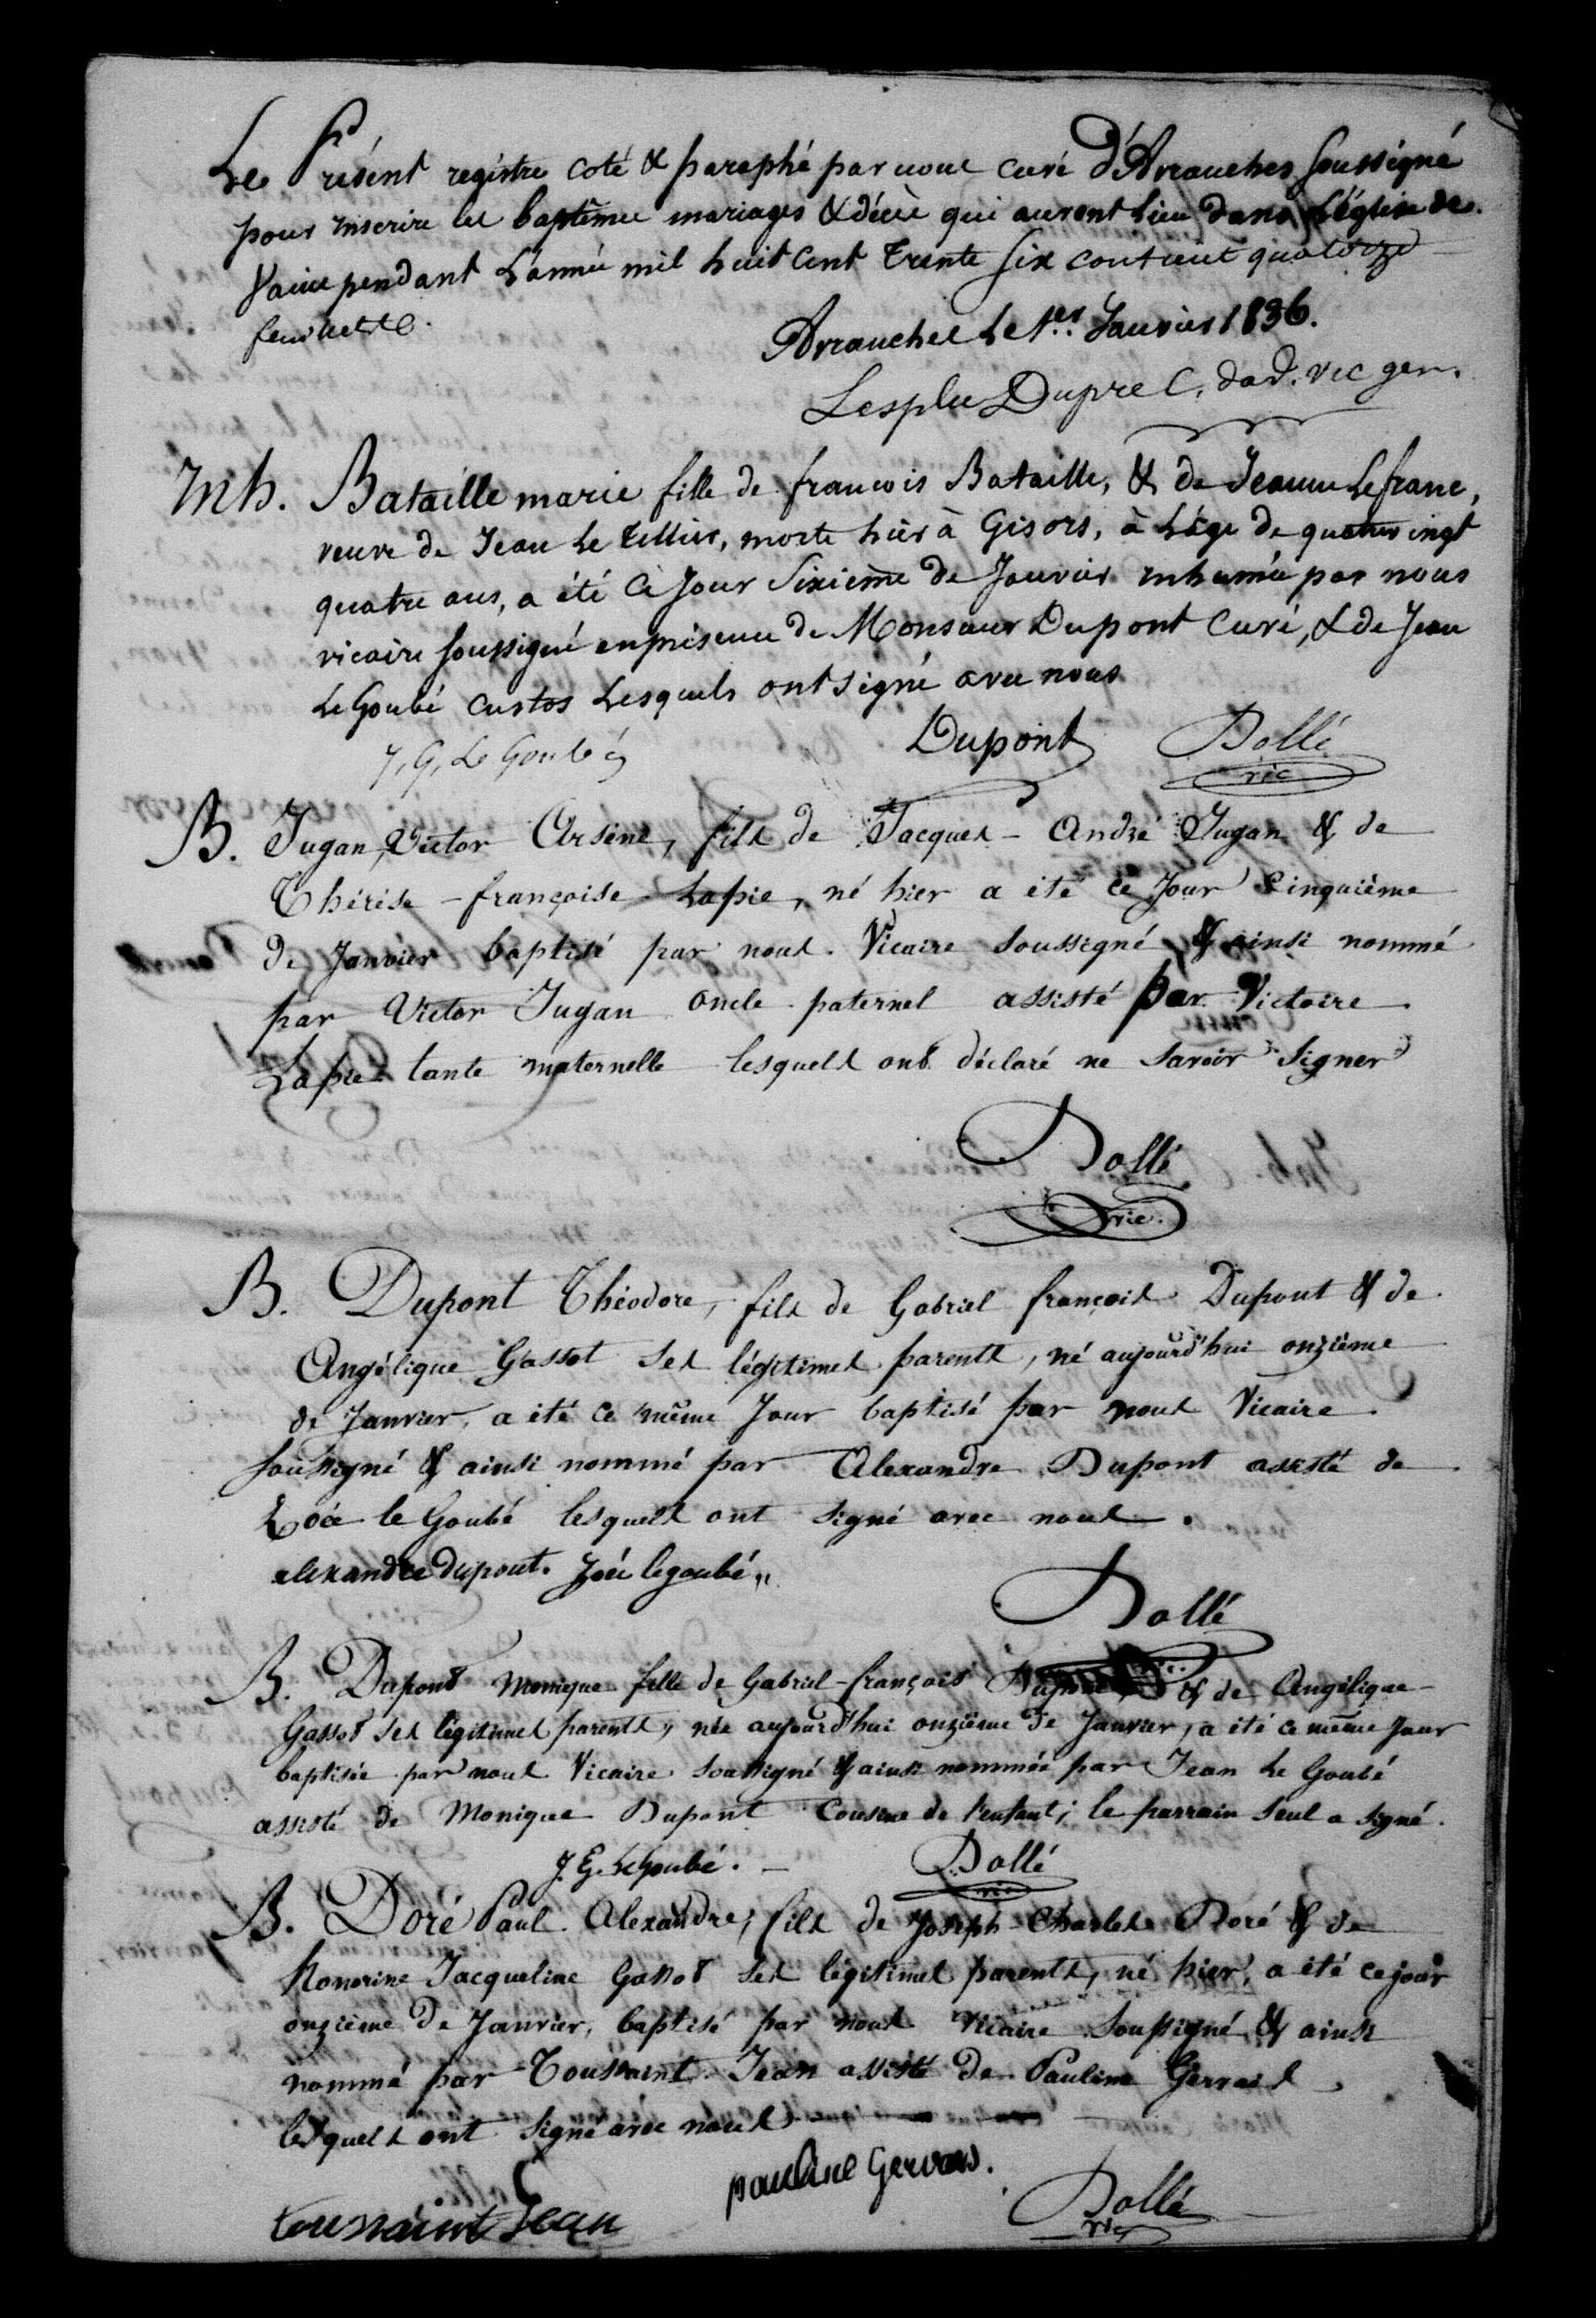 Le Présent registre coté & paraphé par nous curé d'Avranches Soussigné
pour inscrire les baptêmes mariages & décès qui auront lieu dans L'église de
Vains pendant L'année mil huit cent trente six contient quatorze
feuillets.
Avranches Le 1er. Janvier 1836.
Lesplu Dupré C. d'av. vic gen.
Inh. Bataille marie fille de francois Bataille, & de Jeanne Lefranc,
veuve de Jean Le Tellier, morte hier à Gisors, à L'âge de quatrevingt
quatre ans, a été ce Jour Sixième de Janvier inhumée par nous
vicaire Soussigné en présence de Monsieur Dupont Curé, & de Jean
Le Goubé custos Lesquels ont signé avec nous
J. G. Le Goubé Dupont Dollé
vic
B. Jugan, Victor Arsène, fils de Jacques - André Jugan & de
Thérèse - françoise Lapie, né hier a été ce Jour Cinquième
de Janvier baptisé par nous Vicaire Soussigné & ainsi nommé
par Victor Jugan oncle paternel assisté par Victoire
Lapie tante maternelle lesquels ont déclaré ne Savoir Signer
Dollé
vic.
B. Dupont Théodore, fils de Gabriel françois Dupont & de
Angélique Gassot Ses légitimes parents, né aujourd'hui onzième
de Janvier, a été ce même Jour baptisé par nous Vicaire
Soussigné & ainsi nommé par Alexandre Dupont assisté de
Zoée le Goubé lesquels ont signé avec nous.
alexandre Dupont. Zoée legoubé
Dollé
vic.
B. Dupont Monique fille de Gabriel-françois Dupont & de Angélique
Gassot Ses légitimes parents, née aujourd'hui onzième de Janvier, a été ce même Jour
baptisée par nous Vicaire Soussigné & ainsi nommée par Jean Le Goubé
assisté de Monique Dupont Cousine de l'enfant; le parrain Seul a signé.
J. G. LeGoubé. Dollé
vic
B. Doré Paul Alexandre, fils de Joseph-Charles Doré & de
Honorine Jacqueline Gassot Ses légitimes parents, né hier, a été ce jour
onzième de Janvier, baptisé par nous Vicaire Soussigné & ainsi
nommé par Toussaint Jean assisté de Pauline Gervais
lesquels ont Signé avec nous
pauline Gervais.
toussaint Jean Dollé
vic